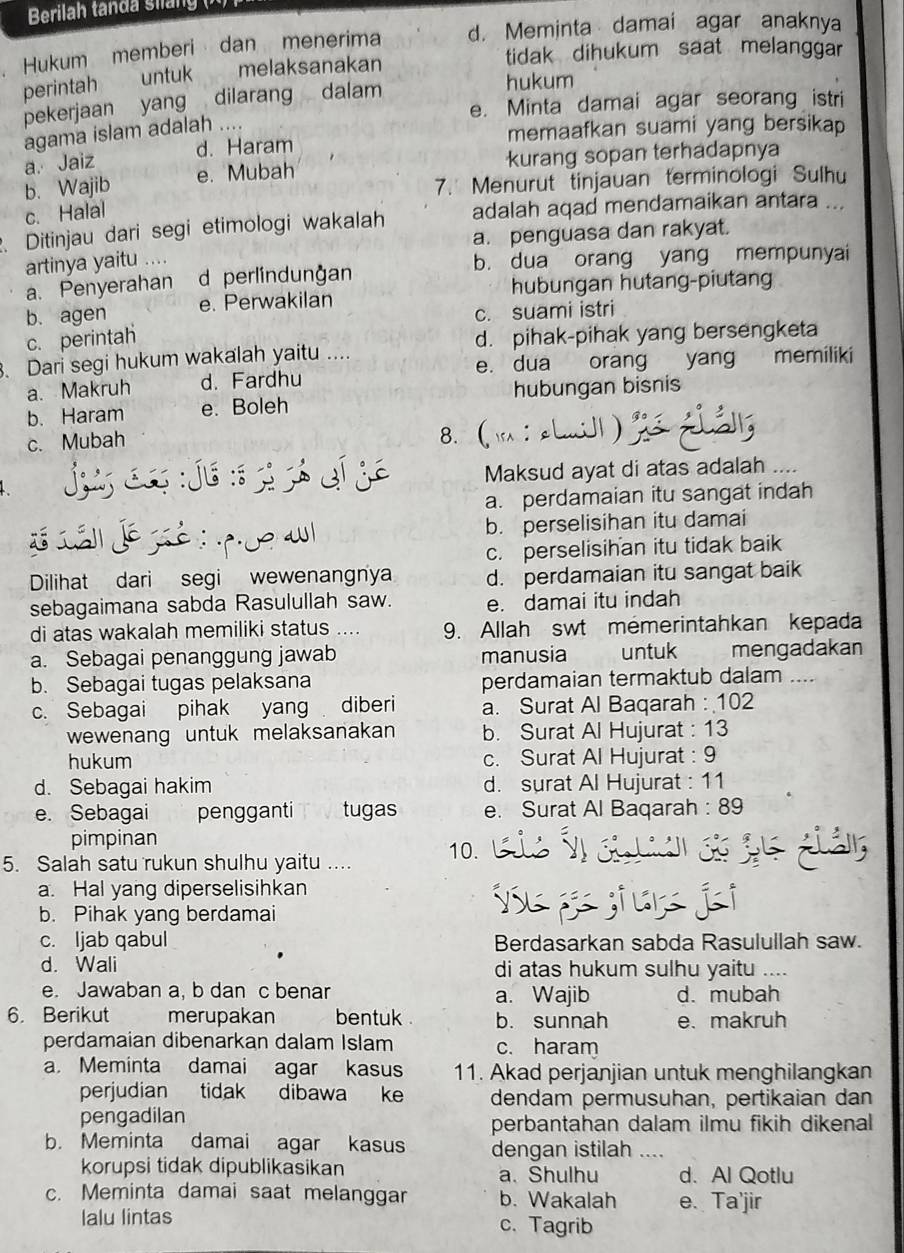 Berilah tanda silang (X)
Hukum memberi dan menerima
perintah untuk melaksanakan
pekerjaan yang dilarang dalam
agama islam adalah ....
a. Jaiz d. Haram
b. Wajib e. Mubah
c. Halal
Ditinjau dari segi etimologi wakalah
artinya yaitu ....
a. Penyerahan d perlindungan
b. agen e. Perwakilan
c. perintah
3. Dari segi hukum wakalah yaitu ....
a. Makruh d. Fardhu
b. Haram e. Boleh
c. Mubah
عَنْ أَبِي هُرَيْرَةَ : قَالَ: بَعَثَ رَسُوْلُ
الله ص.م. : عُمَرَ عَلَى الصَّدَقَةِ
Dilihat dari segi wewenangnya
sebagaimana sabda Rasulullah saw.
di atas wakalah memiliki status ....
a. Sebagai penanggung jawab
b. Sebagai tugas pelaksana
c. Sebagai pihak yang diberi
wewenang untuk melaksanakan
hukum
d. Sebagai hakim
e. Sebagai pengganti tugas
pimpinan
5. Salah satu rukun shulhu yaitu ....
a. Hal yang diperselisihkan
b. Pihak yang berdamai
c. Ijab qabul
d. Wali
e. Jawaban a, b dan c benar
6. Berikut merupakan bentuk
perdamaian dibenarkan dalam Islam
a. Meminta damai agar kasus
perjudian tidak dibawa ke
pengadilan
b. Meminta damai agar kasus
korupsi tidak dipublikasikan
c. Meminta damai saat melanggar
lalu lintas
d. Meminta damai agar anaknya
tidak dihukum saat melanggar
hukum
e. Minta damai agar seorang istri
memaafkan suami yang bersikap
kurang sopan terhadapnya
7. Menurut tinjauan terminologi Sulhu
adalah aqad mendamaikan antara ...
a. penguasa dan rakyat.
b. dua orang yang mempunyai
hubungan hutang-piutang
c. suami istri
d. pihak-pihak yang bersengketa
e. dua orang yang memiliki
hubungan bisnis
8. وَالصُّلْحُ خَيْرٌ ( النساء : ١٢٨ )
Maksud ayat di atas adalah ....
a. perdamaian itu sangat indah
b. perselisihan itu damai
c. perselisihan itu tidak baik
d. perdamaian itu sangat baik
e. damai itu indah
9. Allah swt memerintahkan kepada
manusia untuk mengadakan
perdamaian termaktub dalam ....
a. Surat Al Baqarah : 102
b. Surat Al Hujurat : 13
c. Surat Al Hujurat : 9
d. surat Al Hujurat : 11
e. Surat Al Baqarah : 89
10. وَالصُّلْحُ جَايِزٌ بَيْنَ الْمُسْلِمِيْنَ إِلاَّ صُلْحًا
أَحَلَّ حَرَامًا أَوْ حَرَّمَ حَلاَلاً
Berdasarkan sabda Rasulullah saw.
di atas hukum sulhu yaitu ....
a. Wajib d. mubah
b. sunnah e. makruh
c. haram
11. Akad perjanjian untuk menghilangkan
dendam permusuhan, pertikaian dan
perbantahan dalam ilmu fikih dikenal
dengan istilah ....
a. Shulhu d. Al Qotlu
b. Wakalah e. Ta'jir
c. Tagrib